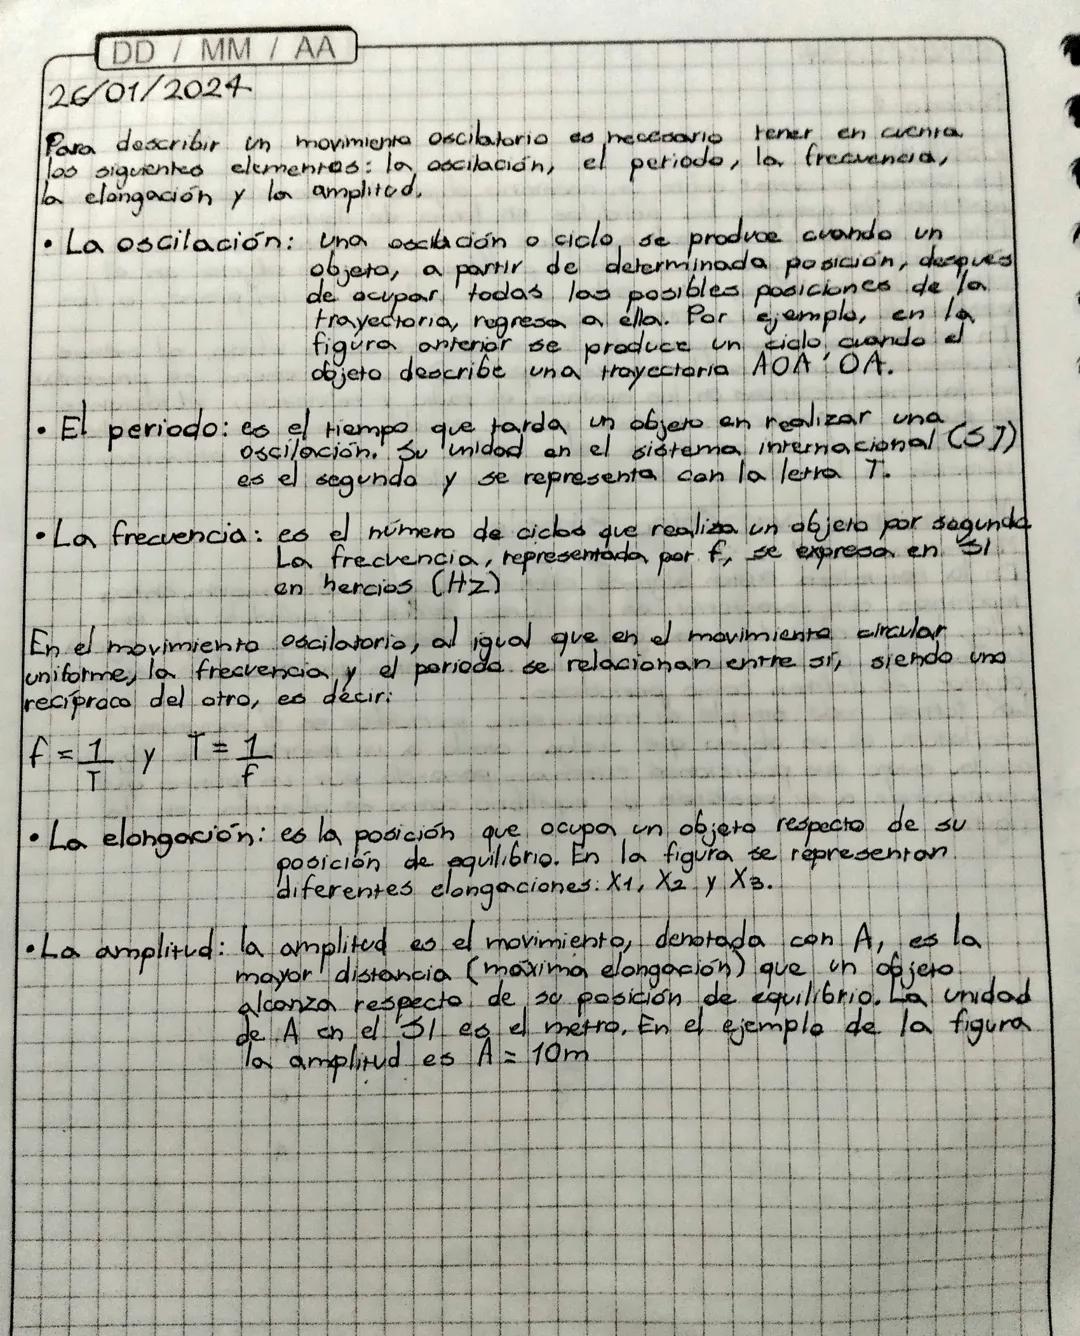 DD / MM / AA
26/01/2024
Para describir un movimiento oscilatorio es necesario tener en cuenta
los siguientes elementos: la oscilación, el periodo, la frecuencia,
la elongación y la amplitud.
• La oscilación: una oscilación o ciclo, se produce cuando un
objeto, a partir de determinada posición, despues
de ocupar todas las posibles posiciones de la
trayectoria, regresa a ella. Por ejemplo, en la
figura anterior se produce un ciclo cuando el
objeto describe una trayectoria AOA'OA.
• El periodo: es el tiempo que tarda un objeto en realizar una
oscilación. Su unidad en el sistema internacional (SI)
es el segundo y se representa con la letra T.
• La frecuencia: es el número de ciclos que realiza un objeto por segundo
La frecuencia, representada por f, se expresa en SI
en hercios (HZ)
En el movimiento oscilatorio, al igual que en el movimiento circular
uniforme, la frecuencia y el periodo se relacionan entre sí, siendo uno
recíproco del otro, es décir:
f = 1/T y T = 1/f
• La elongación: es la posición que ocupa un objeto respecto de su
posición de equilibrio. En la figura se representan
diferentes elongaciones: X1, X2 y X3.
• La amplitud: la amplitud es el movimiento, denotada con A, es la
mayor distancia (máxima elongación) que un objeto
alcanza respecto de su posición de equilibrio. La unidad
de A en el SI es el metro. En el ejemplo de la figura
la amplitud es A = 10m